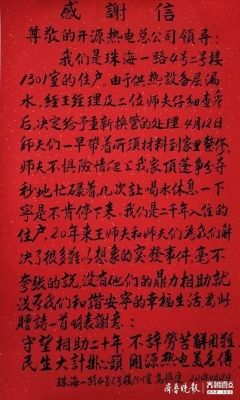 感謝信
尊敬的开源热电总公司领导:
我们是珠海一路4号2号楼
1301室的住户。由于供热设备层漏
水,经王经理及二位师夫仔细查看
后,决定给予重新换管的处理。4月12日
师夫们一早带着所须材料到家里整修,
师夫不惧险情爬上我家顶蓬,分分
秒地忙碌着,几次让喝水休息一下
宁是不肯停下来。我们是二千年入住的
住户,20年来王师夫和师夫们为我们解
决了很多难以想象的突发事件,毫不
夸张的说,没有他们的鼎力相助就
没有我们和谐安寧的幸福生活,为此
赠詩一首略表謝意:
守望相助二十年 不辞勞苦解困難
民生大計掛心頭 開源热电美名傳
珠海一路4号2号楼1301室
齐鲁晚报
齐鲁壹点